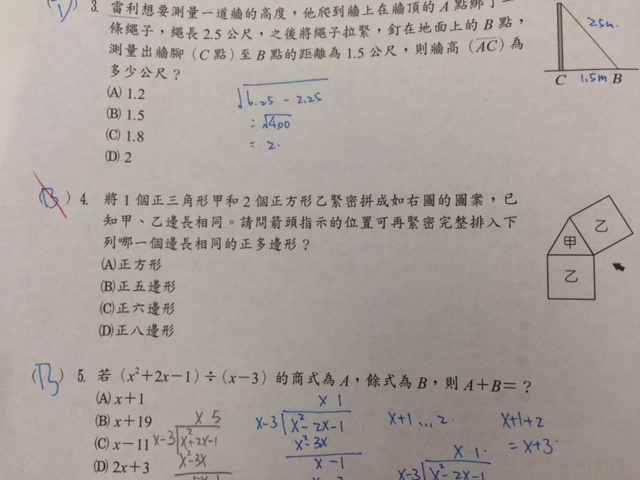 (D) 3. 雷利想要測量一道牆的高度，他爬到牆上在牆頂的 A 點綁了一
條繩子，繩長 2.5 公尺，之後將繩子拉緊，釘在地面上的 B 點，
測量出牆腳（C 點）至 B 點的距離為 1.5 公尺，則牆高 (AC) 為
多少公尺？
(A) 1.2
(B) 1.5
(C) 1.8
(D) 2
√6.25 - 2.25
= √4.00
= 2.
2.5m
C 1.5m B
(B) 4. 將 1 個正三角形甲和 2 個正方形乙緊密拼成如右圖的圖案，已
知甲、乙邊長相同。請問箭頭指示的位置可再緊密完整排入下
列哪一個邊長相同的正多邊形？
(A)正方形
(B)正五邊形
(C)正六邊形
(D)正八邊形
乙
甲
乙
(B) 5. 若 (x²+2x−1)÷(x−3) 的商式為 A，餘式為 B，則 A+B=？
(A) x+1
(B) x+19
(C) x−11
(D) 2x+3
x 5
x-3 x²+2x-1
x²-3x
5x-1
x 1
x-3 x²-2x-1
x²-3x
x -1
x+1 ... 2
x+1+2
= x+3
x 1
x-3 x²-2x-1